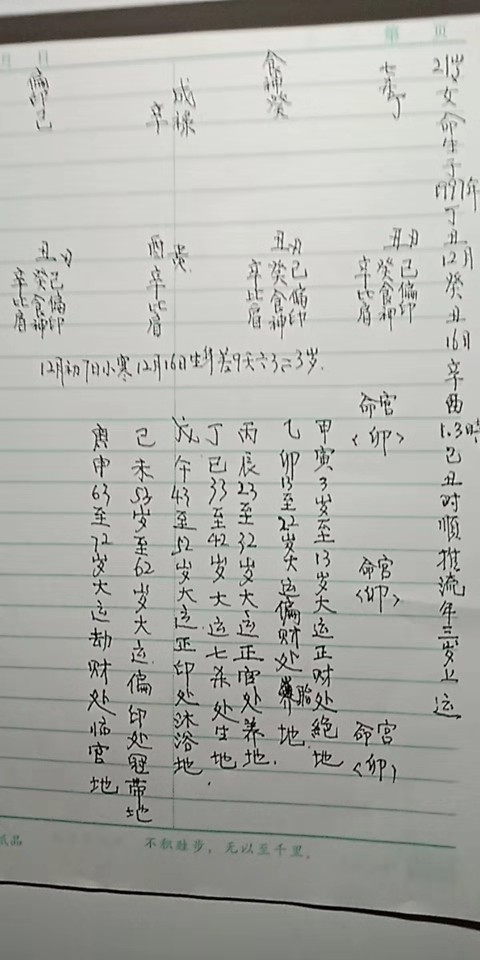 第 页
月 日
21岁女命生于1997年丁丑12月癸丑16日辛酉1.3時己丑时順推流年三岁上运
七杀丁
食神癸
辛
偏印己
丑
己偏印
癸食神
辛比肩
丑
己偏印
癸食神
辛比肩
酉
辛比肩
丑
己偏印
癸食神
辛比肩
12月初7日小寒12月16日生
命宫
<卯>
命宫
<卯>
命宫
<卯>
甲寅3岁至13岁大运正财处絕地
乙卯13至22岁大运偏财处胎地.
丙辰23至32岁大运正官处养地.
丁巳33至42岁大运七杀处生地.
戊午43至52岁大运正印处沐浴地
己未53岁至62岁大运偏印处冠带地
庚申63至72岁大运劫财处临官地
不积跬步，无以至千里。
纸品